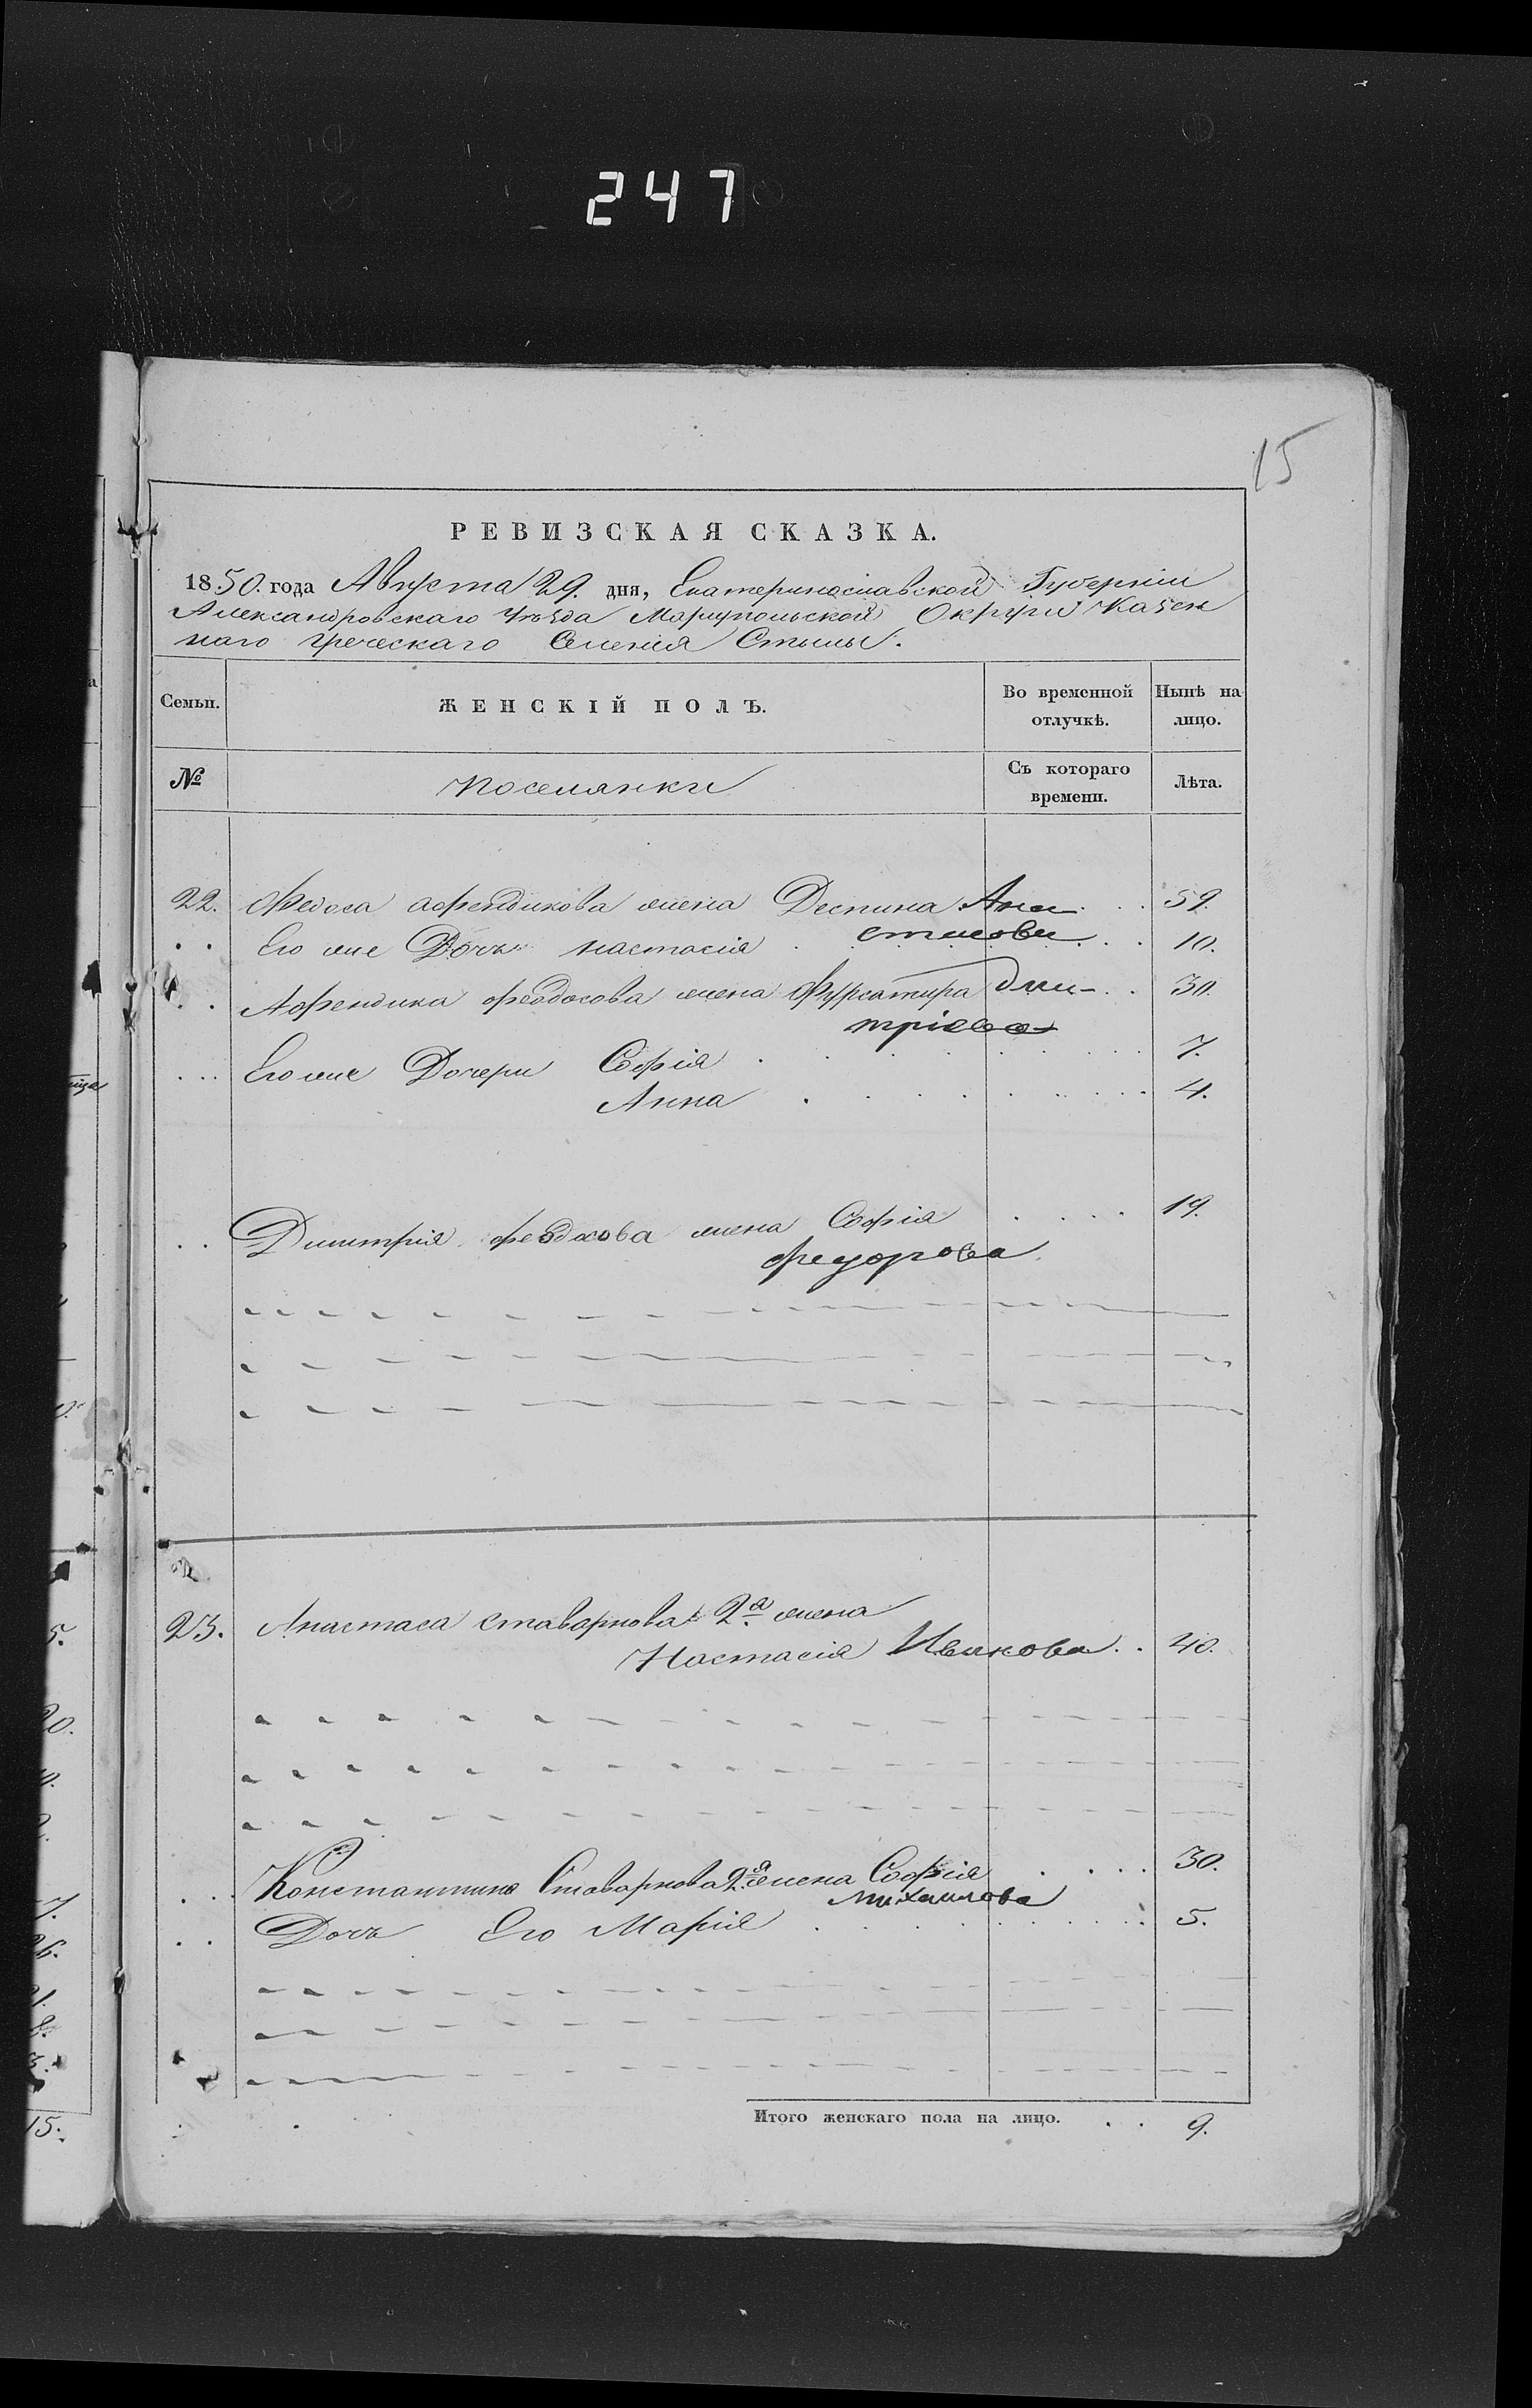 247
15
РЕВИЗСКАЯ СКАЗКА.
1850. года Августа 29. дня, Екатеринославской Губерніи
Александровскаго Уѣзда Маріупольской Округи Казен
наго Греческаго Селенія Стылы.
Семьи.
ЖЕНСКІЙ ПОЛЪ.
Во временной отлучкѣ.
Нынѣ на лицо.
№
Поселянки
Съ котораго времени.
Лѣта.
22. Федоса Афендикова жена Деспина Ана 59.
стасова
Его же Дочь Настасія 10.
Афендика Феодосова жена Дми- 30.
тріева
Его же Дочери Софія 7.
Анна 4.
Димитрія Феодосова жена Софія 19.
Федорова
23. Анастаса Ставарнова 2я жена
Настасія Ивакова 40.
Константина Ставарнова 2я жена Софія 30.
Михаилова
Дочь Его Марія 5.
Итого женскаго пола на лицо. 9.